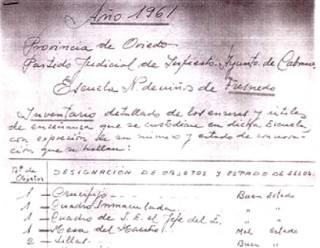 Año 1961
Provincia de Oviedo
Partido Judicial de Infiesto. Ayunto. de Cabranes
Escuela N. de niños de Fresnedo
Inventario detallado de los enseres y útiles
de enseñanza que se custodian en dicha Escuela
con expresión de su número y estado de conserva-
ción que se hallan:
Nº de Objetos DESIGNACIÓN DE OBJETOS Y ESTADO DE ELLOS.
1 - Crucifijo Buen Estado
1 - Cuadro Inmaculada " "
1 - Cuadro de S. E. el Jefe del E. " "
1 - Mesa del Maestro Mal Estado
2 - Sillas Buen "